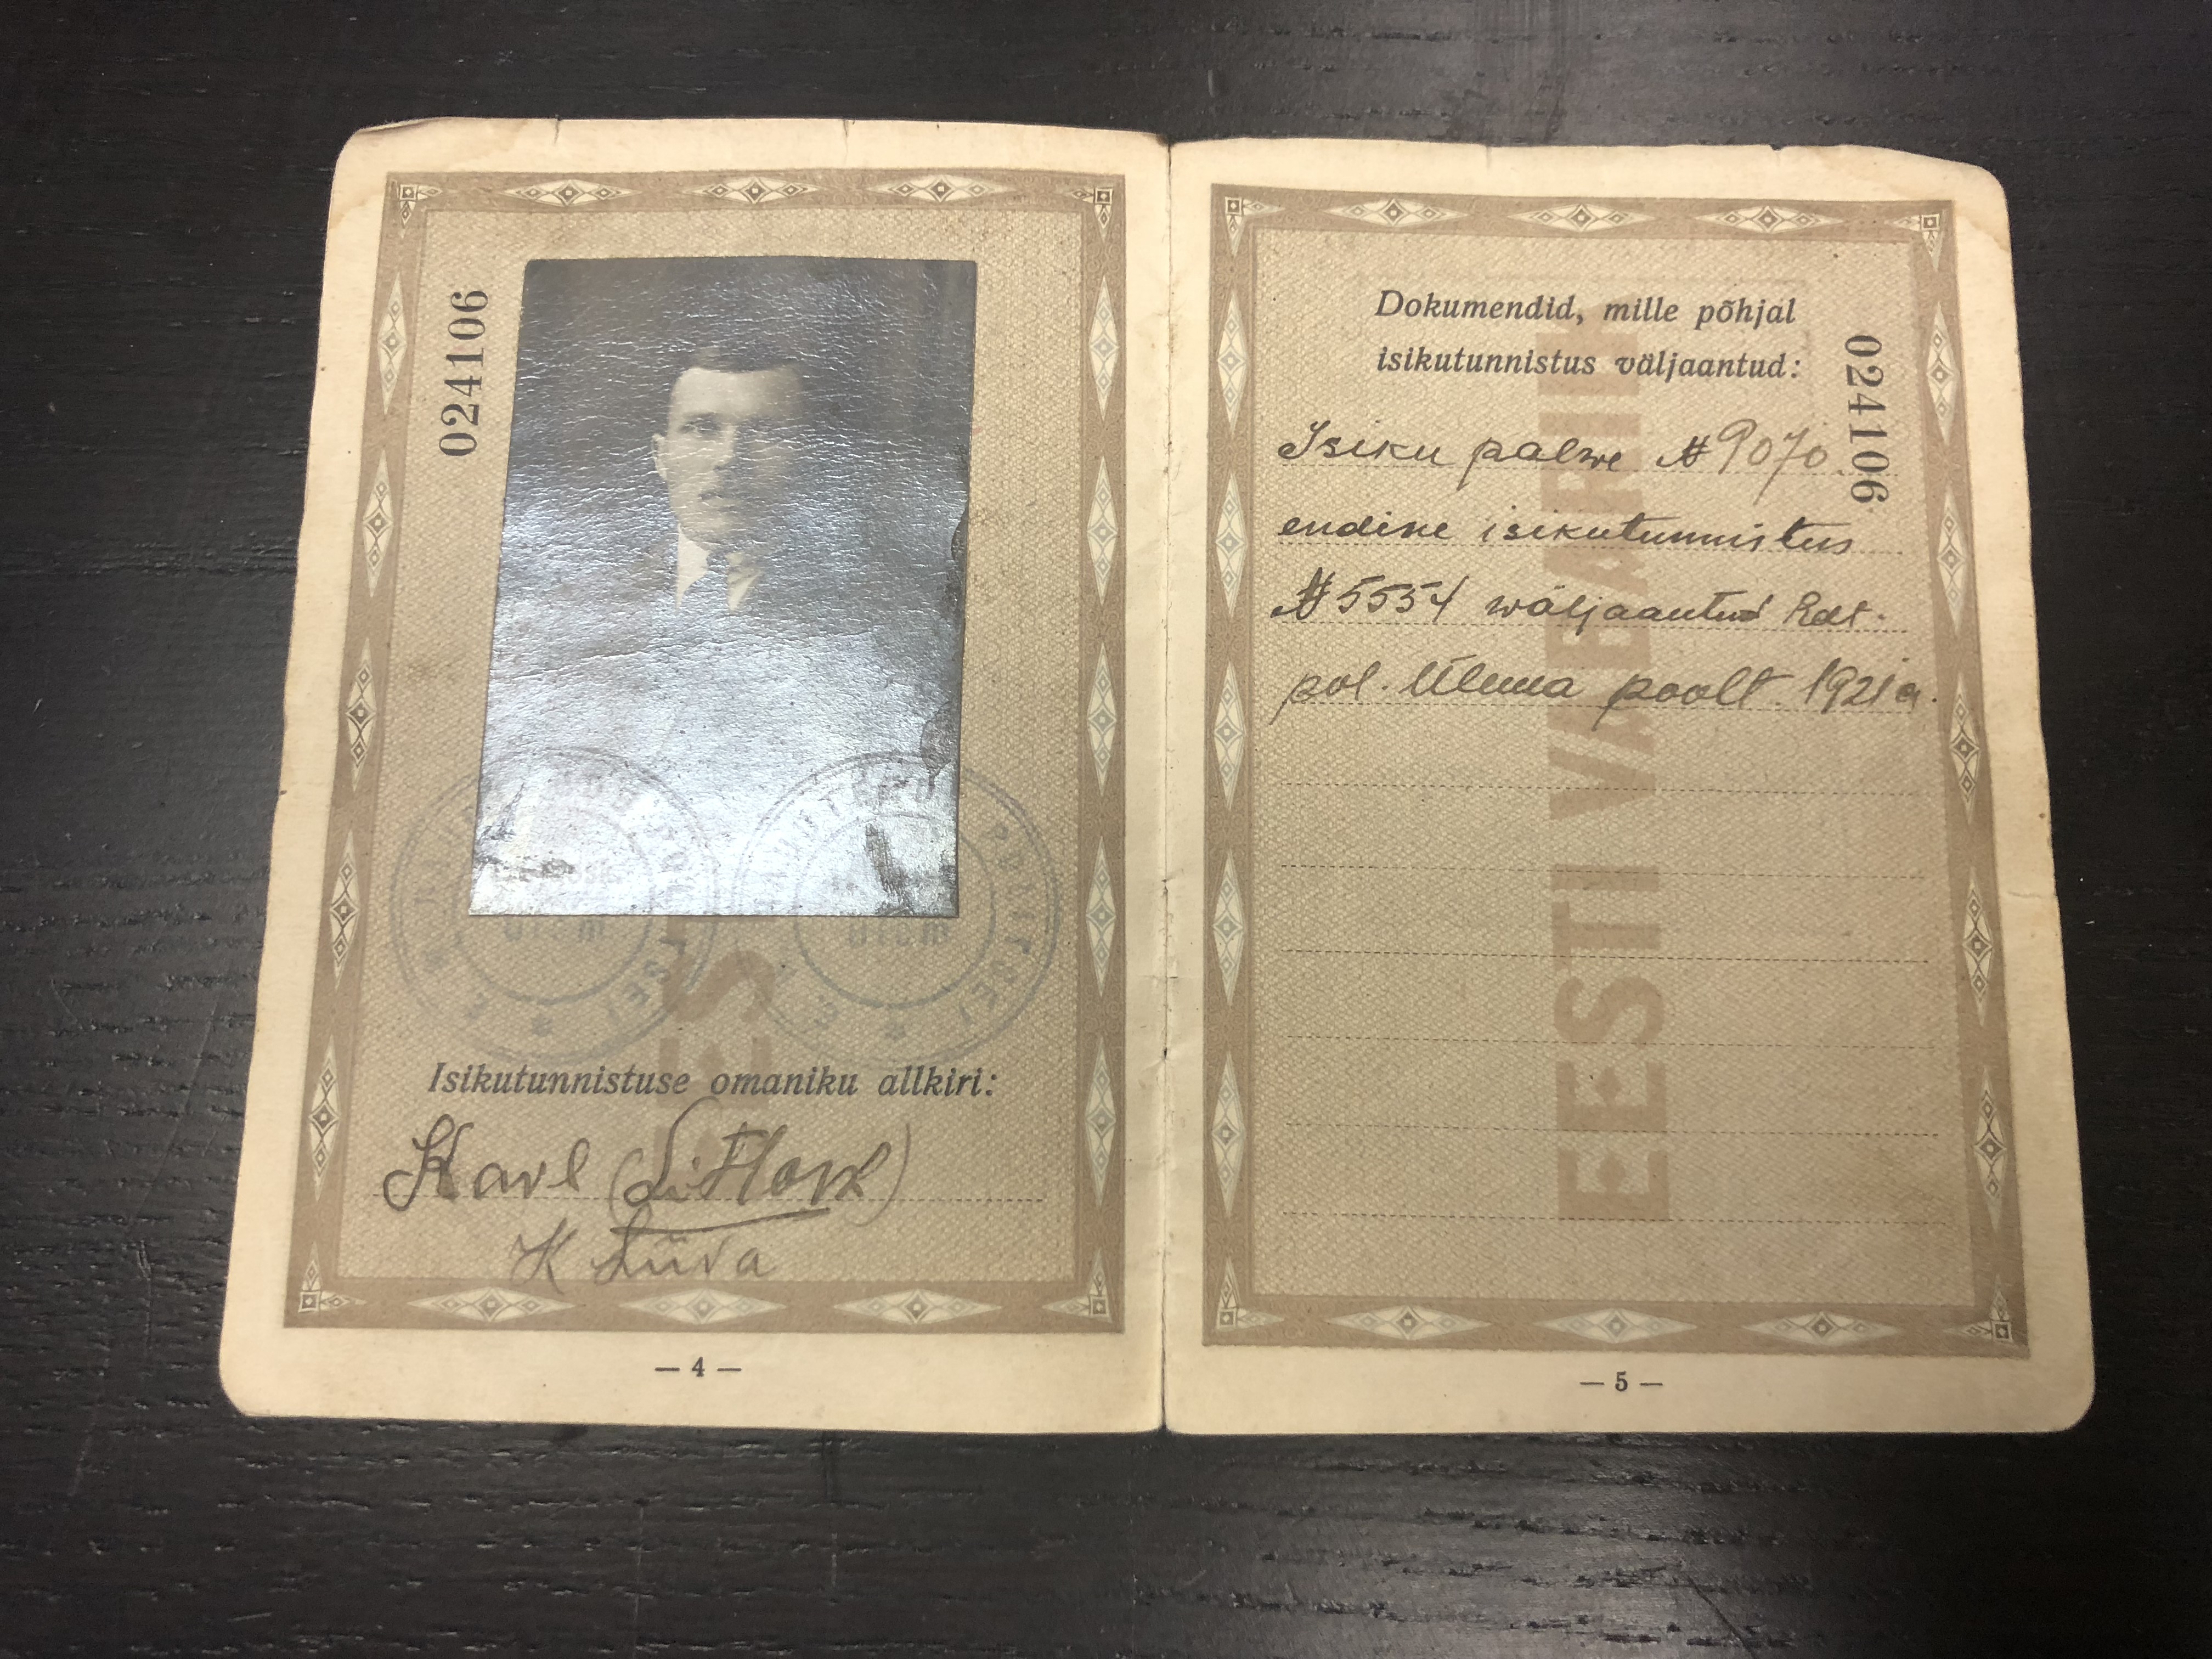 024106
Isikutunnistuse omaniku allkiri:
Karl (Sitlork)
K Liiva
— 4 —
Dokumendid, mille põhjal
isikutunnistus väljaantud:
024106
Isiku palwe № 9070
endine isikutunnistus
№ 5554 wäljaantud
pol. Ülema poolt 1921 a.
EESTI VABARIIK
— 5 —